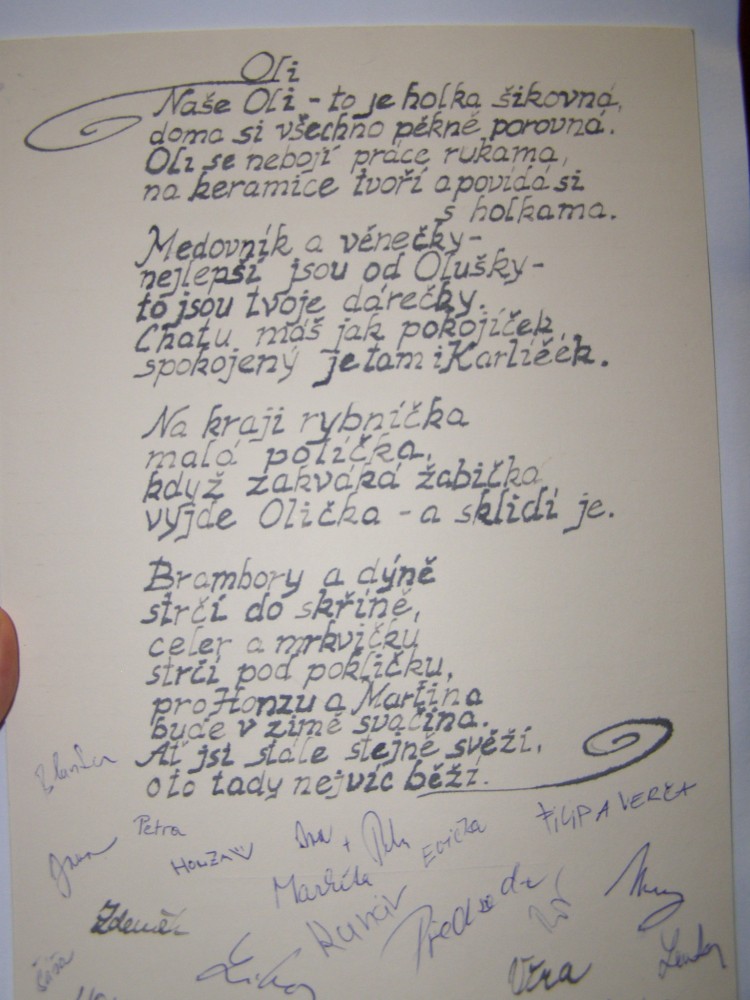 Oli
Naše Oli - to je holka šikovná,
doma si všechno pěkně porovná.
Oli se nebojí práce rukama,
na keramice tvoří a povídá si
s holkama.
Medovník a věnečky -
nejlepší jsou od Olušky -
to jsou tvoje dárečky.
Chatu máš jak pokojíček,
spokojený je tam i Karlíček.
Na kraji rybníčka
malá políčka,
když zakváká žabička,
vyjde Olička - a sklidí je.
Brambory a dýně
strčí do skříně,
celer a mrkvičku
strčí pod pokličku,
pro Honzu a Martina
bude v zimě svačina.
Ať jsi stále stejně svěží,
o to tady nejvíc běží.
Blanka
Petra
HONZA
Evička
FILIP A VERČA
Markéta
Zdeněk
Věra
Saša
Lenka